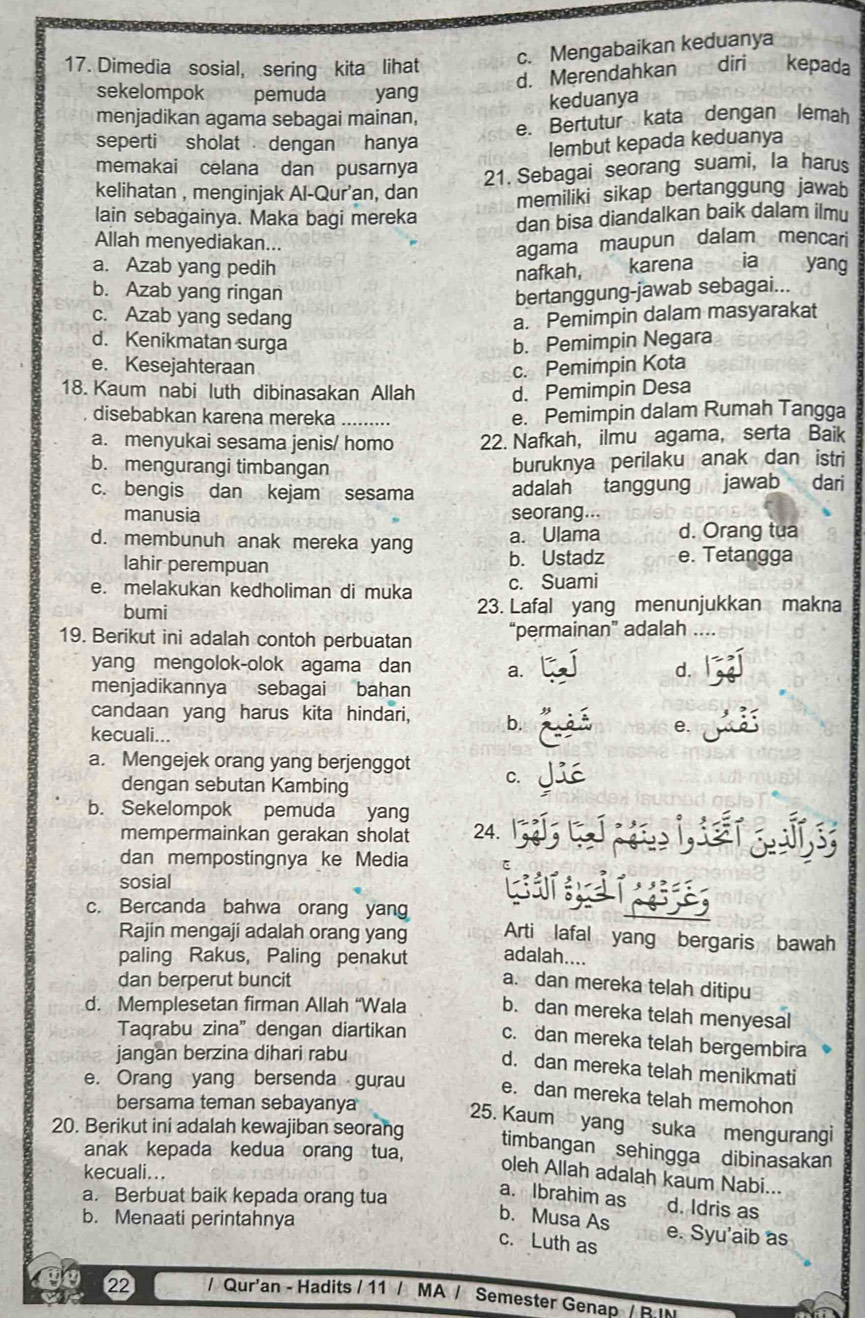 17. Dimedia sosial, sering kita lihat
sekelompok pemuda yang
menjadikan agama sebagai mainan,
seperti sholat dengan hanya
memakai celana dan pusarnya
kelihatan , menginjak Al-Qur'an, dan
lain sebagainya. Maka bagi mereka
Allah menyediakan...
a. Azab yang pedih
b. Azab yang ringan
c. Azab yang sedang
d. Kenikmatan surga
e. Kesejahteraan
18. Kaum nabi luth dibinasakan Allah
disebabkan karena mereka .........
a. menyukai sesama jenis/ homo
b. mengurangi timbangan
c. bengis dan kejam sesama
manusia
d. membunuh anak mereka yang
lahir perempuan
e. melakukan kedholiman di muka
bumi
19. Berikut ini adalah contoh perbuatan
yang mengolok-olok agama dan
menjadikannya sebagai bahan
candaan yang harus kita hindari,
kecuali...
a. Mengejek orang yang berjenggot
dengan sebutan Kambing
b. Sekelompok pemuda yang
mempermainkan gerakan sholat
dan mempostingnya ke Media
sosial
c. Bercanda bahwa orang yang
Rajin mengaji adalah orang yang
paling Rakus, Paling penakut
dan berperut buncit
d. Memplesetan firman Allah “Wala
Taqrabu zina” dengan diartikan
jangan berzina dihari rabu
e. Orang yang bersenda gurau
bersama teman sebayanya
20. Berikut ini adalah kewajiban seorang
anak kepada kedua orang tua,
kecuali...
a. Berbuat baik kepada orang tua
b. Menaati perintahnya
c. Mengabaikan keduanya
d. Merendahkan diri kepada
keduanya
e. Bertutur kata dengan lemah
lembut kepada keduanya
21. Sebagai seorang suami, Ia harus
memiliki sikap bertanggung jawab
dan bisa diandalkan baik dalam ilmu
agama maupun dalam mencari
nafkah, karena ia yang
bertanggung-jawab sebagai...
a. Pemimpin dalam masyarakat
b. Pemimpin Negara
c. Pemimpin Kota
d. Pemimpin Desa
e. Pemimpin dalam Rumah Tangga
22. Nafkah, ilmu agama, serta Baik
buruknya perilaku anak dan istri
adalah tanggung jawab dari
seorang...
a. Ulama d. Orang tua
b. Ustadz e. Tetangga
c. Suami
23. Lafal yang menunjukkan makna
“permainan” adalah ....
a. لَعِبًا d. لَهْوًا
b. شَفِيعٌ e. نَفْسٌ
c. عَدْلٍ
24. وَذَرِ ٱلَّذِينَ ٱتَّخَذُوا۟ دِينَهُمْ لَعِبًا وَلَهْوًا
وَغَرَّتْهُمُ ٱلْحَيَوٰةُ ٱلدُّنْيَا ۚ
Arti lafal yang bergaris bawah
adalah....
a. dan mereka telah ditipu
b. dan mereka telah menyesal
c. dan mereka telah bergembira
d. dan mereka telah menikmati
e. dan mereka telah memohon
25. Kaum yang suka mengurangi
timbangan sehingga dibinasakan
oleh Allah adalah kaum Nabi...
a. Ibrahim as d. Idris as
b. Musa As e. Syu'aib as
c. Luth as
22 / Qur'an - Hadits / 11 / MA / Semester Genap / BJN